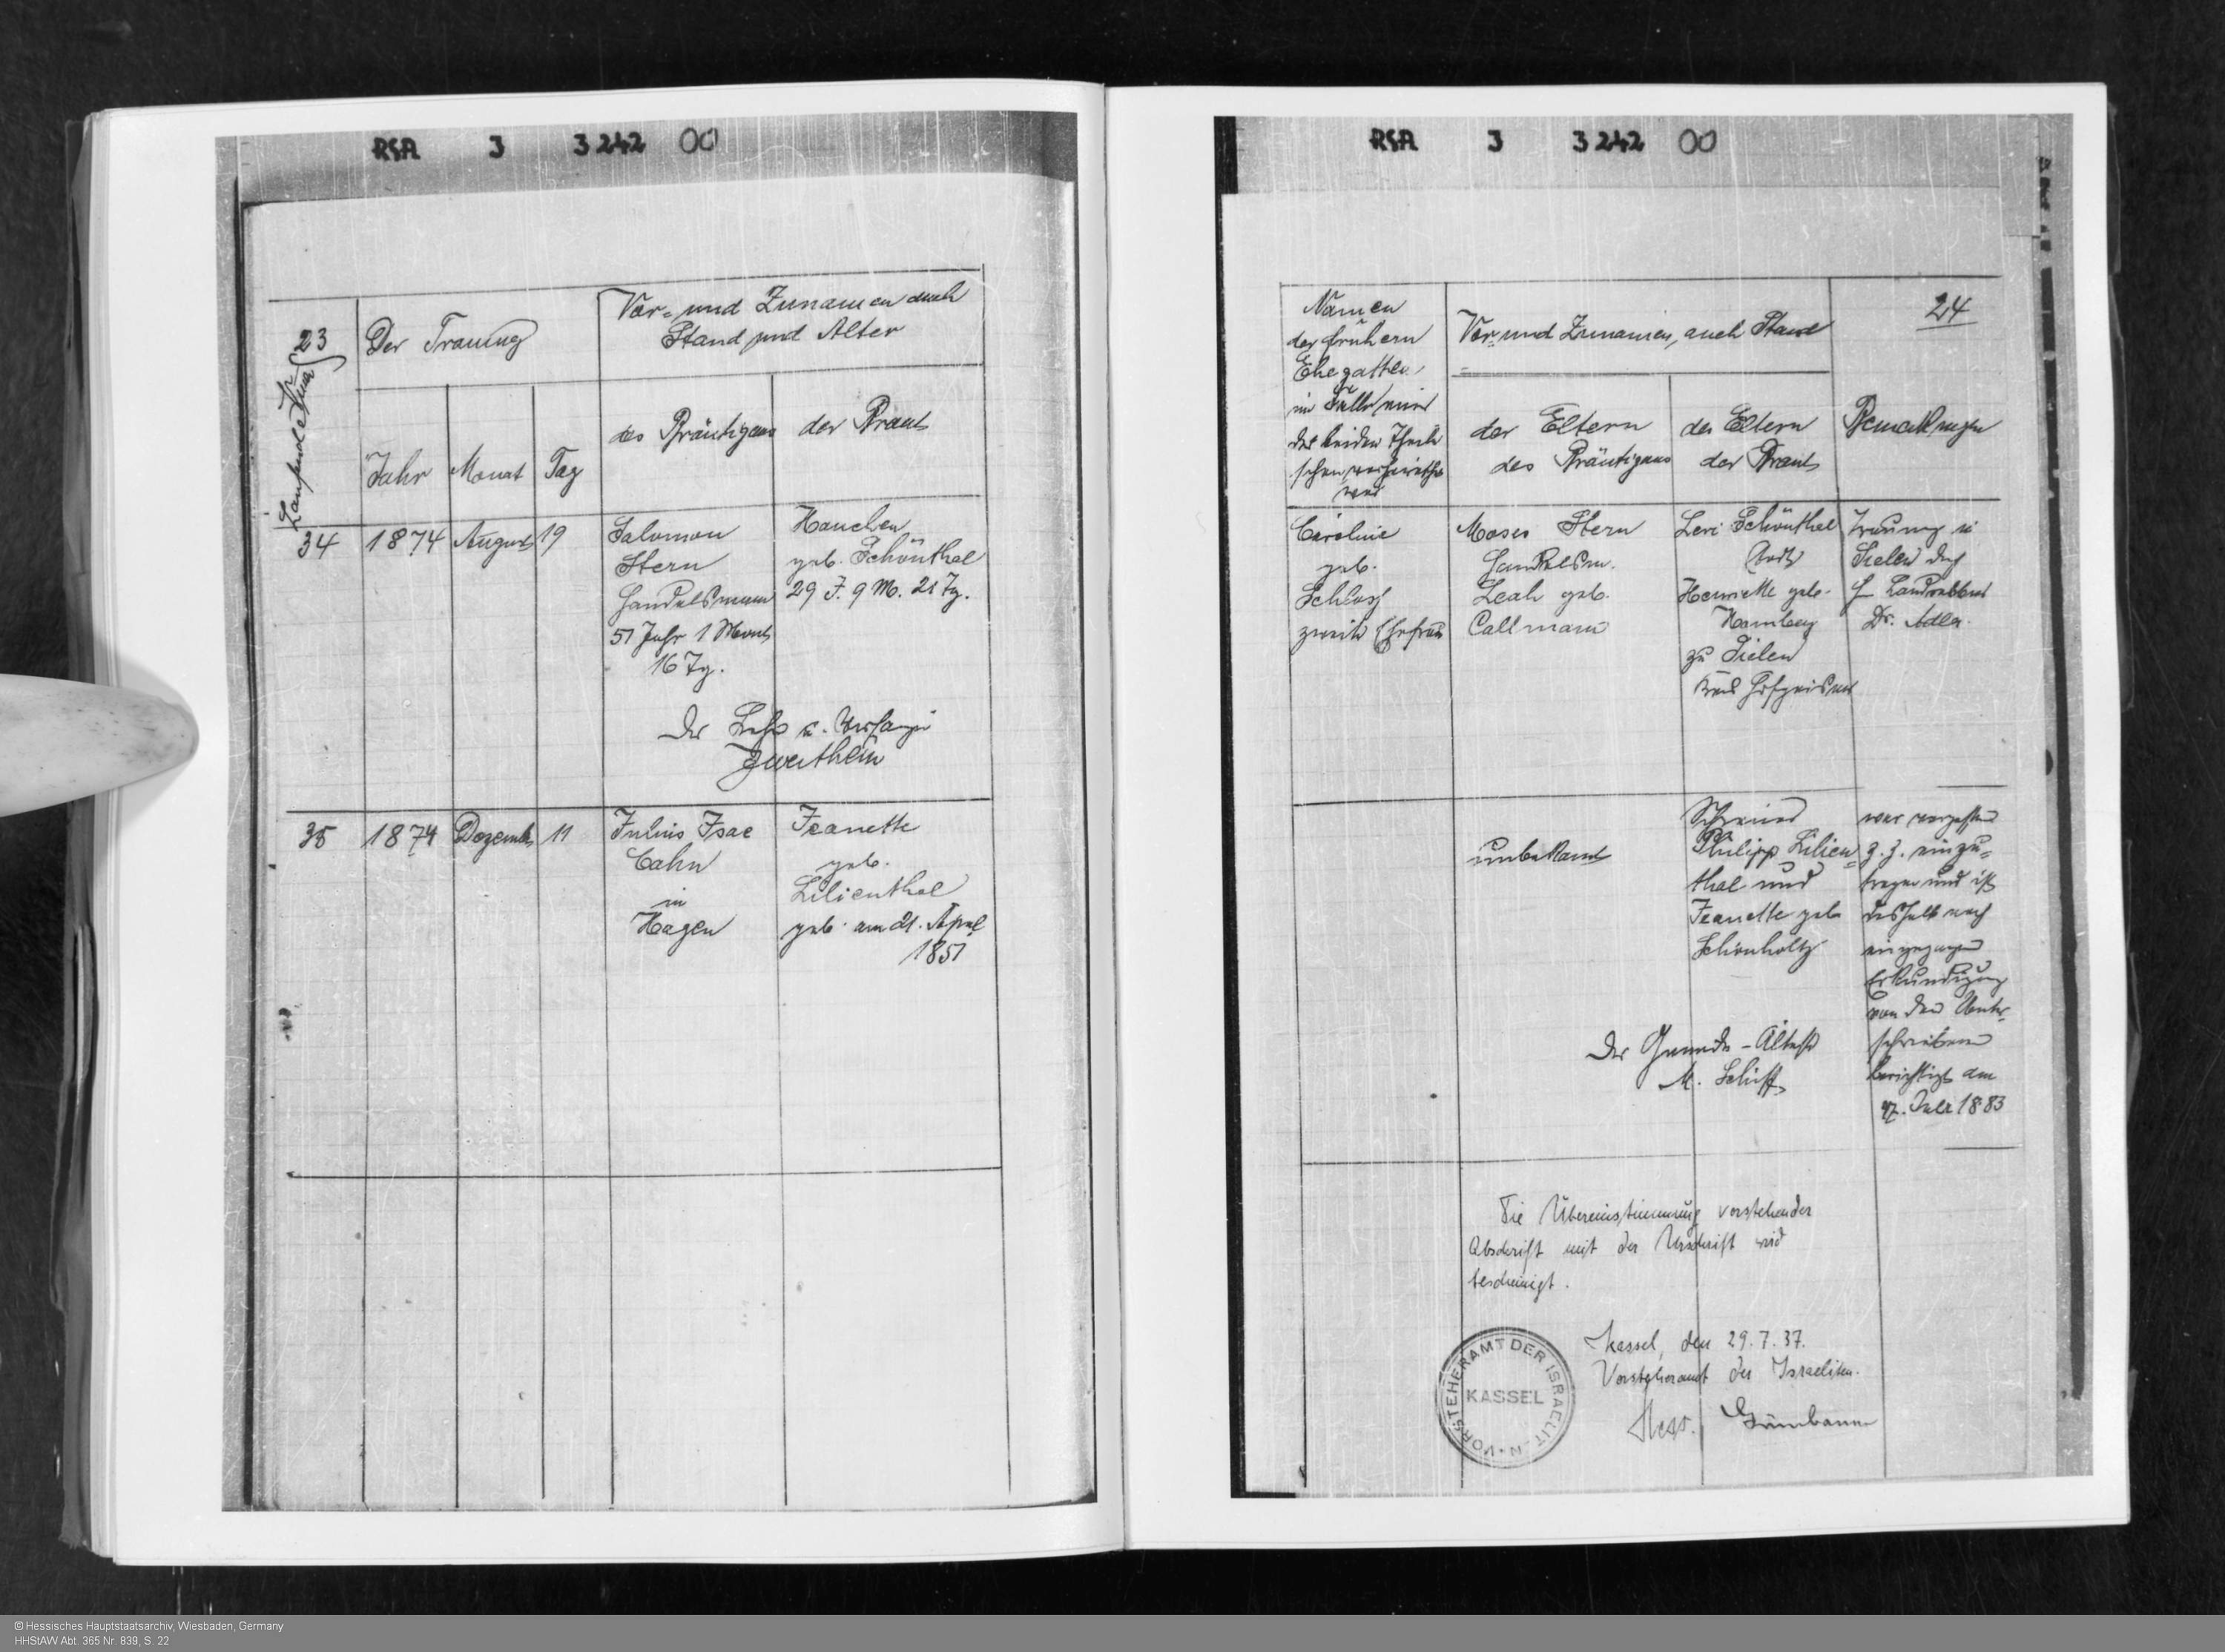 RSA J 3242 00
23
Laufende Nr.
Der Trauung
Vor- und Zunamen auch
Stand und Alter
Jahr
Monat
Tag
des Bräutigams
der Braut
34
1874
August
19
Salomon
Stern
Handelsmann
51 Jahr 1 Monat
16 Tg.
Hanchen
geb. Schönthal
29 J. 9 M. 21 Tg.
Der
35
1874
Dezemb.
11
Julius Isac
Cahn
in
Hagen
Jeanette
geb.
Lilienthal
geb. am 21. April
1851
RSA J 3242 00
24
Namen
der frühern
Ehegatten,
im Falle einer
der beiden Theile
schon verheirathet
war
Vor- und Zunamen, auch Stand
der Eltern
des Bräutigams
der Eltern
der Braut
Bemerkungen
Caroline
geb.
Schloss
zweite Ehefrau
Moses Stern
Handelsm.
Leah geb.
Callmann
Levi Schönthal
Henriette geb.
Hamberg
zu Sielen
Kreis Hofgeismar
Trauung in
Sielen durch
H. Landrabbiner
Dr. Adler.
unbekannt
Philipp Lilien=
thal und
Jeanette geb.
Schönholtz
war vergessen
z. Z. einzu=
tragen und ist
deshalb nach
eingezogener
Erkundigung
von dem Unter-
schriebenen
berichtigt am
Der Gemeinde-Älteste
M. Schiff
Die Übereinstimmung vorstehender
Abschrift mit der Urschrift wird
bescheinigt.
Kassel, den 29.7.37.
Vorsteheramt der Israeliten.
Grünbaum
VORSTEHERAMT DER ISRAELITEN
KASSEL
© Hessisches Hauptstaatsarchiv, Wiesbaden, Germany
HHStAW Abt. 365 Nr. 839, S. 22